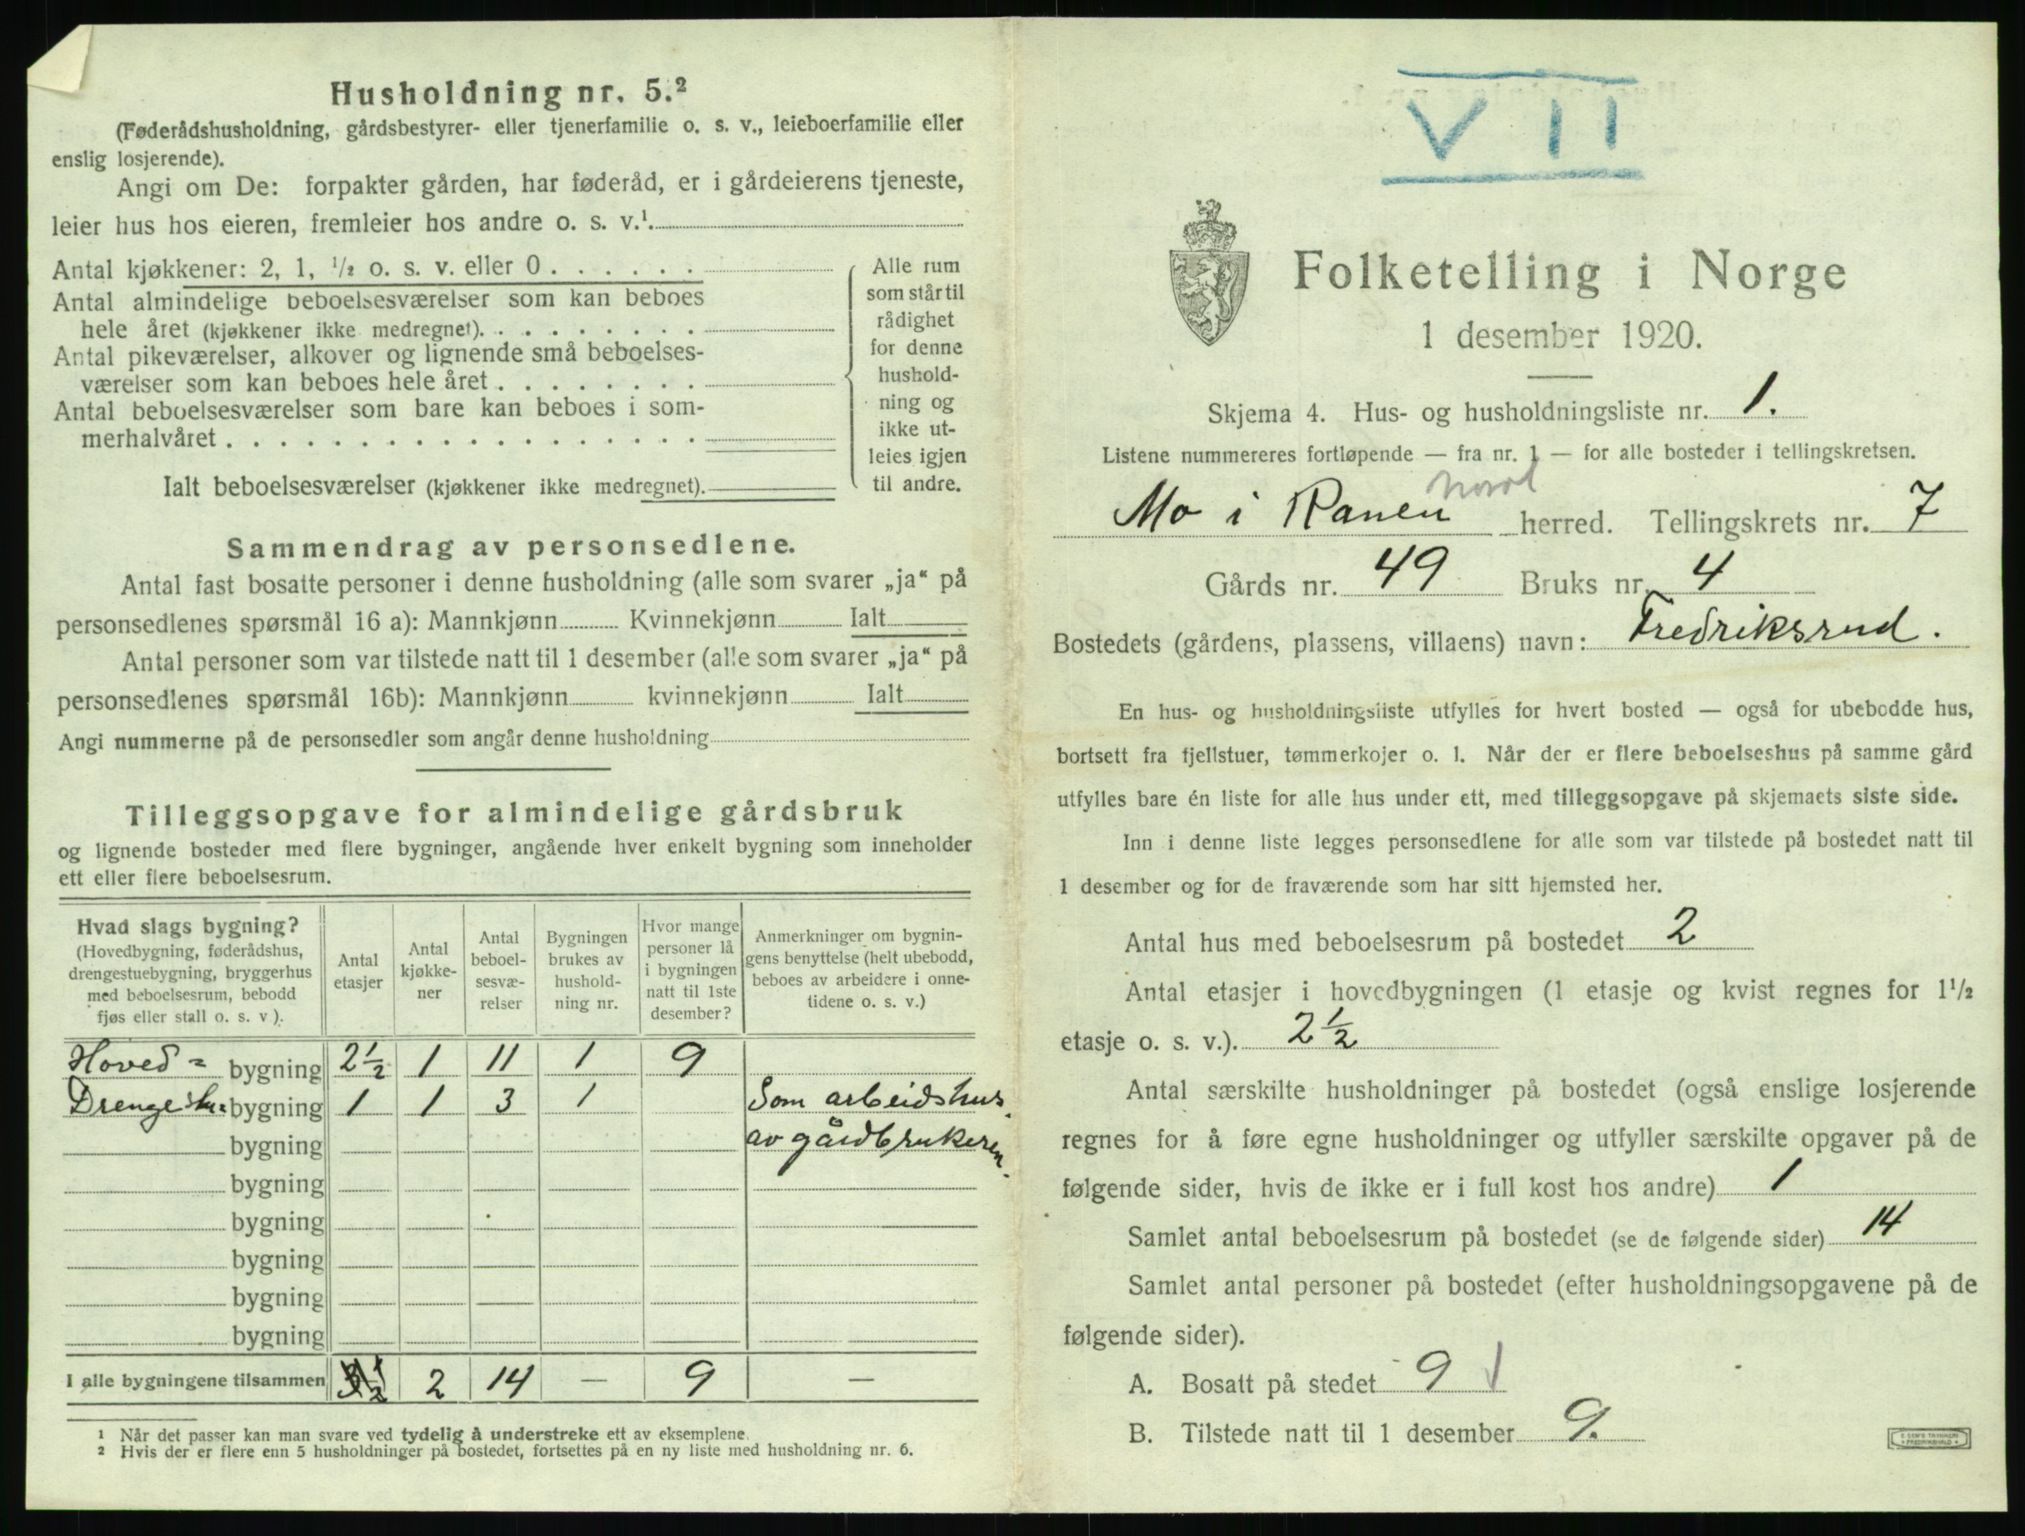 Husholdning nr. 5.²
(Føderådshusholdning, gårdsbestyrer- eller tjenerfamilie o. s. v., leieboerfamilie eller
enslig losjerende).
Angi om De: forpakter gården, har føderåd, er i gårdeierens tjeneste,
leier hus hos eieren, fremleier hos andre o. s. v.¹
Antal kjøkkener: 2, 1, ½ o. s. v. eller 0
Antal almindelige beboelsesværelser som kan beboes
hele året (kjøkkener ikke medregnet)
Antal pikeværelser, alkover og lignende små beboelses-
værelser som kan beboes hele året
Antal beboelsesværelser som bare kan beboes i som-
merhalvåret
Ialt beboelsesværelser (kjøkkener ikke medregnet).
Alle rum
som står til
rådighet
for denne
hushold-
ning og
ikke ut-
leies igjen
til andre.
Sammendrag av personsedlene.
Antal fast bosatte personer i denne husholdning (alle som svarer „ja“ på
personsedlenes spørsmål 16 a): Mannkjønn Kvinnekjønn Ialt
Antal personer som var tilstede natt til 1 desember (alle som svarer „ja“ på
personsedlenes spørsmål 16b): Mannkjønn kvinnekjønn Ialt
Angi nummerne på de personsedler som angår denne husholdning
Tilleggsopgave for almindelige gårdsbruk
og lignende bosteder med flere bygninger, angående hver enkelt bygning som inneholder
ett eller flere beboelsesrum.
Hvad slags bygning?
(Hovedbygning, føderådshus,
drengestuebygning, bryggerhus
med beboelsesrum, bebodd
fjøs eller stall o. s. v ).
Antal
etasjer
Antal
kjøkke-
ner
Antal
beboel-
sesvæ-
relser
Bygningen
brukes av
hushold-
ning nr.
Hvor mange
personer lå
i bygningen
natt til 1ste
desember?
Anmerkninger om bygnin-
gens benyttelse (helt ubebodd,
beboes av arbeidere i onne-
tidene o. s. v.)
Hoved= bygning 2½ 1 11 1 9
bygning 1 1 3 1 Som arbeidshus
bygning av gårdbrukeren.
bygning
bygning
bygning
bygning
bygning
I alle bygningene tilsammen 2 14 — 9 —
¹ Når det passer kan man svare ved tydelig å understreke ett av eksemplene.
² Hvis der er flere enn 5 husholdninger på bostedet, fortsettes på en ny liste med husholdning nr. 6.
VII
Folketelling i Norge
1 desember 1920.
Skjema 4. Hus- og husholdningsliste nr. 1.
Listene nummereres fortløpende — fra nr. 1 — for alle bosteder i tellingskretsen.
Nord
Mo i Ranen herred. Tellingskrets nr. 7
Gårds nr. 49 Bruks nr. 4
Bostedets (gårdens, plassens, villaens) navn: Fredriksrud.
En hus- og husholdningsliste utfylles for hvert bosted — også for ubebodde hus,
bortsett fra fjellstuer, tømmerkojer o. l. Når der er flere beboelseshus på samme gård
utfylles bare én liste for alle hus under ett, med tilleggsopgave på skjemaets siste side.
Inn i denne liste legges personsedlene for alle som var tilstede på bostedet natt til
1 desember og for de fraværende som har sitt hjemsted her.
Antal hus med beboelsesrum på bostedet 2
Antal etasjer i hovedbygningen (1 etasje og kvist regnes for 1½
etasje o. s. v.). 2½
Antal særskilte husholdninger på bostedet (også enslige losjerende
regnes for å føre egne husholdninger og utfyller særskilte opgaver på de
følgende sider, hvis de ikke er i full kost hos andre) 1
Samlet antal beboelsesrum på bostedet (se de følgende sider) 14
Samlet antal personer på bostedet (efter husholdningsopgavene på de
følgende sider).
A. Bosatt på stedet 9
B. Tilstede natt til 1 desember 9.